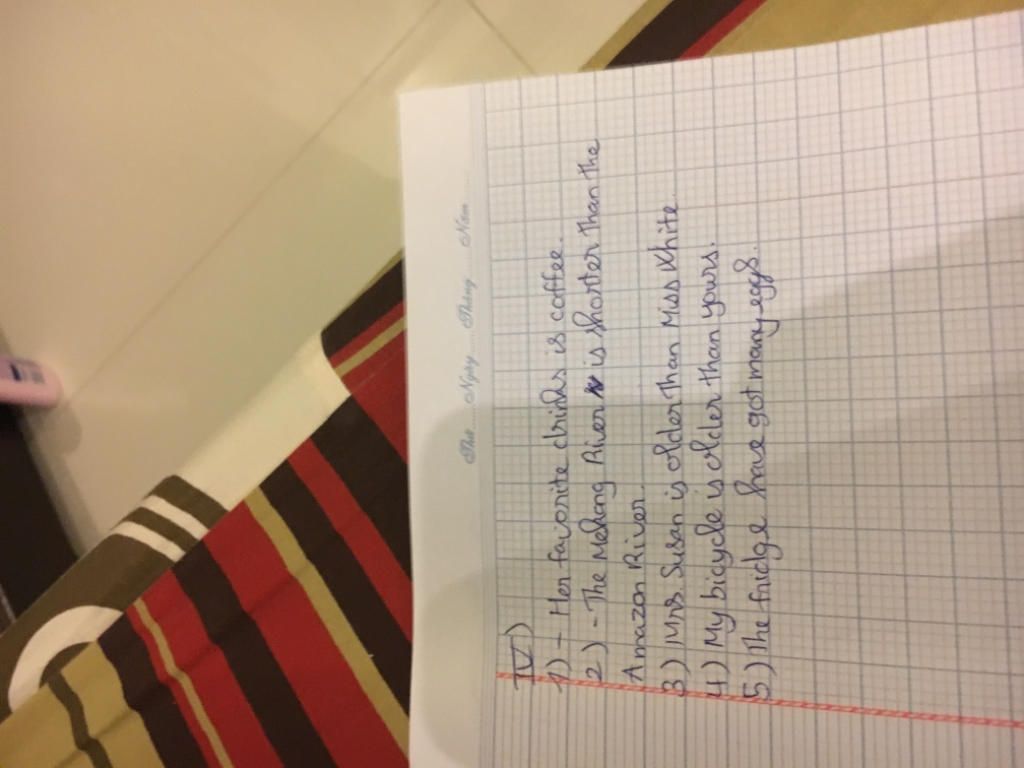 Thứ ........ Ngày ........ Tháng ........ Năm ........
IV)
1) - Her favorite drinks is coffee.
2) - The Mekong River is shorter than the
Amazon River.
3) Mrs Susan is older than Miss White.
4) My bicycle is older than yours.
5) The fridge have got many eggs.